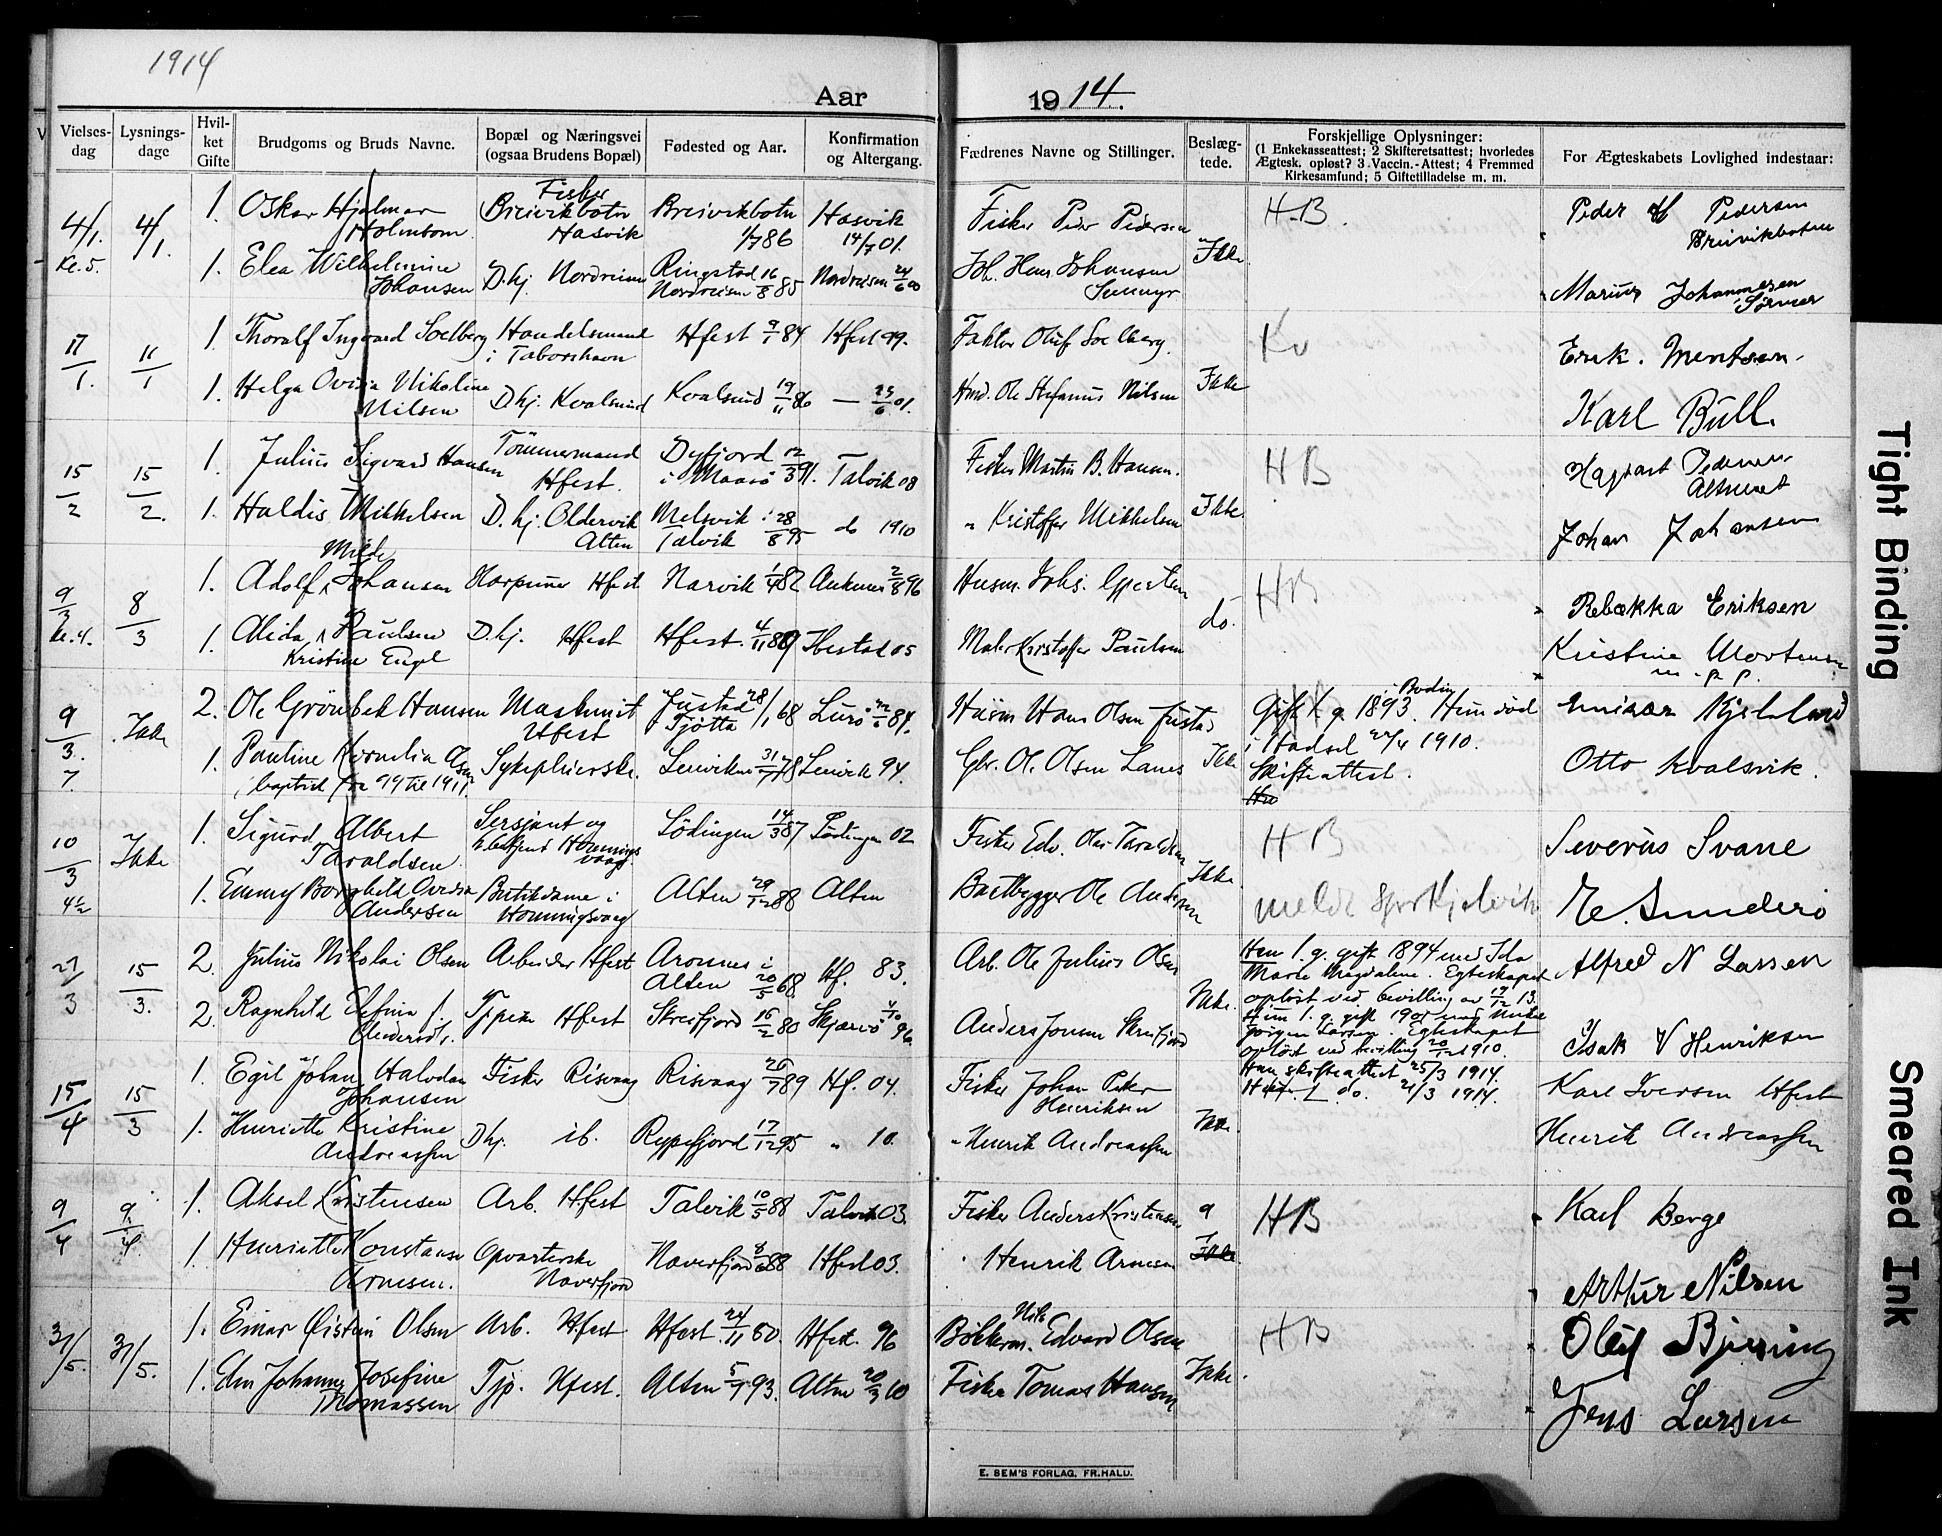 1914
Aar 1914.
Vielses-dag
Lysnings-dage
Hvil-ket Gifte
Brudgoms og Bruds Navne.
Bopæl og Næringsvei (ogsaa Brudens Bopæl)
Fødested og Aar.
Konfirmation og Altergang.
Fædrenes Navne og Stillinger.
Beslæg-tede.
Forskjellige Oplysninger:
(1 Enkekasseattest; 2 Skifteretsattest; hvorledes
Ægtesk. opløst? 3 Vaccin.-Attest; 4 Fremmed
Kirkesamfund; 5 Giftetilladelse m. m.
For Ægteskabets Lovlighed indestaar:
4/1. Kl. 5. 4/1. 1. Oskar Hjalmar Holmbom Fisker Breivikbotn Hasvik Breivikbotn 1/7 86 Hasvik 14/7 01. Fisker Peder Pedersen Ikke H.B. Peder H Pedersen Breivikbotten
1. Elea Wilhelmine Johansen D. hj. Nordreisen Ringstad Nordreisen 16/8 85 Nordreisen 24/6 00 Joh. Hans Johansen Marius Johannesen
11/1. 11/1 1. Thoralf Ingvard Soelberg Handelsmand i Hfest 9/1 84 Hfest 99. Faktor Oluf Soelberg Ikke Kv Erik. Mentsen.
1. Helga Ovidia Nikoline Nilsen D. hj. Kvalsund Kvalsund 19/11 86 — 25/6 01. Ole Stefanus Nilsen Karl Bull.
15/2 15/2. 1. Julius Sigvard Hansen Tømmermand Hfest. Dyfjord i Maasø 12/3 91. Talvik 08 Fisker Martin B. Hansen. Ikke. HB Pedersen
1. Haldis Mikkelsen D. hj. Oldervik Alten Melsvik i Talvik 28/8 95 do 1910 " Kristoffer Mikkelsen Johan Johansen
9/3 Kl. 4. 8/3 1. Adolf Milde Johansen Harpuner Hfest Narvik 1/4 82 Ankenes 2/8 96 Husm. Johs. do. HB Rebekka Eriksen
1. Alida Kristine Engel Paulsen D. hj. Hfest Hfest. 4/11 89 Ibestad 05 Maler Kristoffer Paulsen Kristine Mortensen m. p. p.
9/3. 7. Ikke 2. Ole Grönbek Hansen Maskinist Hfest Justad Tjøtta 28/1 68 Lurö 84. Husm Hans Olsen Justad Ikke Gift 1 g. 1893 i Bodin. Hun död i Hadsel 22/4 1910. Skifteattest. Kjelsland
1. Pauline Kornelia Olsen baptist fra 99 til 1911. Sykepleierske. Lenviken 31/7 78 Lenvik 94. Ole Olsen Lanes Otto Kvalsvik.
10/3 4½ Ikke 1. Sigurd Albert Taraldsen Sersjant og Honningsvaag Lödingen 14/3 87 Lödingen 02 Fisker Edv. Olai Taraldsen Ikke HB Severus Svane
1. Emmy Borghild Ovidia Andersen Butikdame i Honningsvaag Alten 29/12 88 Alten Baatbygger Ole Andersen
27/3 15/3. 2. Julius Nikolai Olsen Arbeider Hfest Aronnes i Alten 20/5 68 Hf. 83. Arb. Ole Julius Olsen Ikke. Han 1. g. gift 1894 med Ida Marie Magdalene. Egteskapet oplöst ved bevilling av 17/12 13. Alfred N Larsen
2. Ragnhild Elfina f. Andersd. Tjpike Hfest Skreifjord 16/2 80 Skjærvö 96 Anders Jonsen Skreifjord Hun 1. g. gift 190 med Jörgen Larsen. Egteskapet oplöst ved bevilling 20/12 1910. Han skifteattest 25/3 1914. do. 21/3 1914. Isak V Henriksen
15/4 15/3 1. Egil Johan Halvdan Johansen Fisker Risvaag Risvaag 26/7 89 Hf. 04. Fisker Johan Peter Henriksen Ikke. Karl Iversen Hfest
1. Henriette Kristine Andreassen D. hj. ib. Rypefjord 17/12 95 " 10. " Henrik Andreassen Henrik Andreassen
9/4 9/4. 1. Aksel Kristensen Arb. Hfest Talvik 10/5 88 Talvik 03. Fisker Anders Kristensen HB Karl Berge
1. Henriette Konstanse Arnesen. Opvarterske Naverfjord Naverfjord 88 Hfest 03. " Henrik Arnesen Ikke Arthur Nilsen
31/5. 31/5. 1. Einar Øistein Olsen Arb. Hfest Hfest 24/11 80. Hfest. 96 Bøkkerm. Nils Edvard Olsen Ikke. HB Oluf Bjering
1. Johanne Josefine Thomassen Tjp. Hfest. Alten 5/1 93. Alten 20/3 10 Fisker Tomas Hansen Jens Larsen
E. SEM'S FORLAG, FR.HALD.
Tight Binding
Smeared Ink